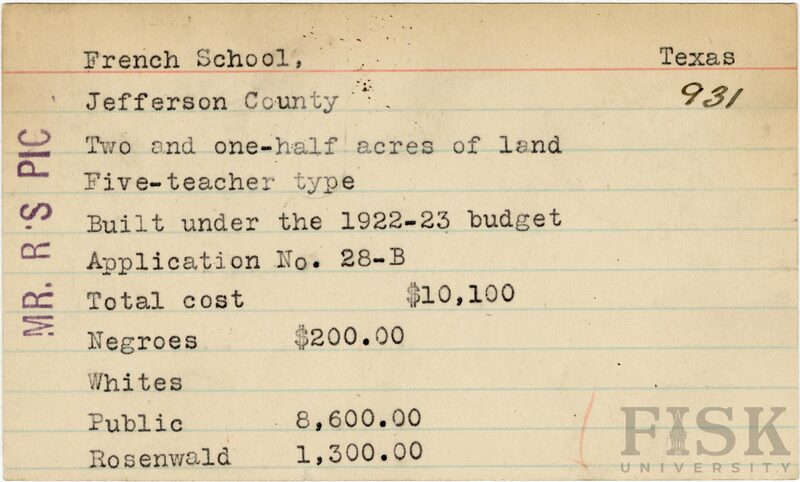 French School, Texas
931
Jefferson County
Two and one-half acres of land
Five-teacher type
Built under the 1922-23 budget
Application No. 28-B
Total cost $10,100
Negroes $200.00
Whites
Public 8,600.00
Rosenwald 1,300.00
MR. R'S PIC
FISK
UNIVERSITY